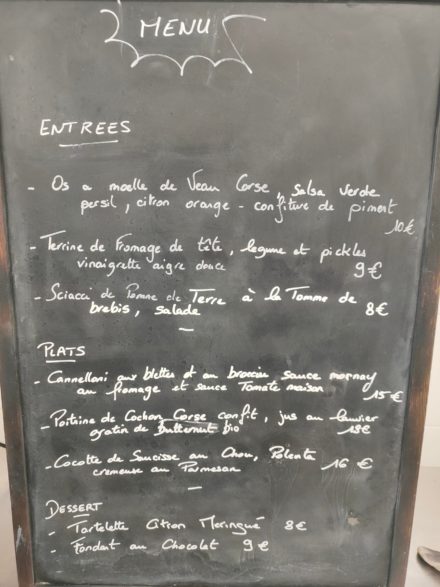 MENU
ENTREES
- Os a moelle de Veau Corse, salsa verde
persil, citron orange - confiture de piment
10€
- Terrine de Fromage de tête, legume et pickles
vinaigrette aigre douce
9€
- Sciacci de Pomme de Terre à la Tomme de
brebis, salade 8€
PLATS
- Cannelloni aux blettes et au brocciu sauce mornay
au fromage et sauce Tomate maison 15€
- Poitrine de Cochon Corse confit, jus au laurier
gratin de butternut bio
- Cocotte de Saucisse au Chou, Polenta
cremeuse au Parmesan 16€
DESSERT
- Tartelette Citron Meringué 8€
- Fondant au Chocolat 9€